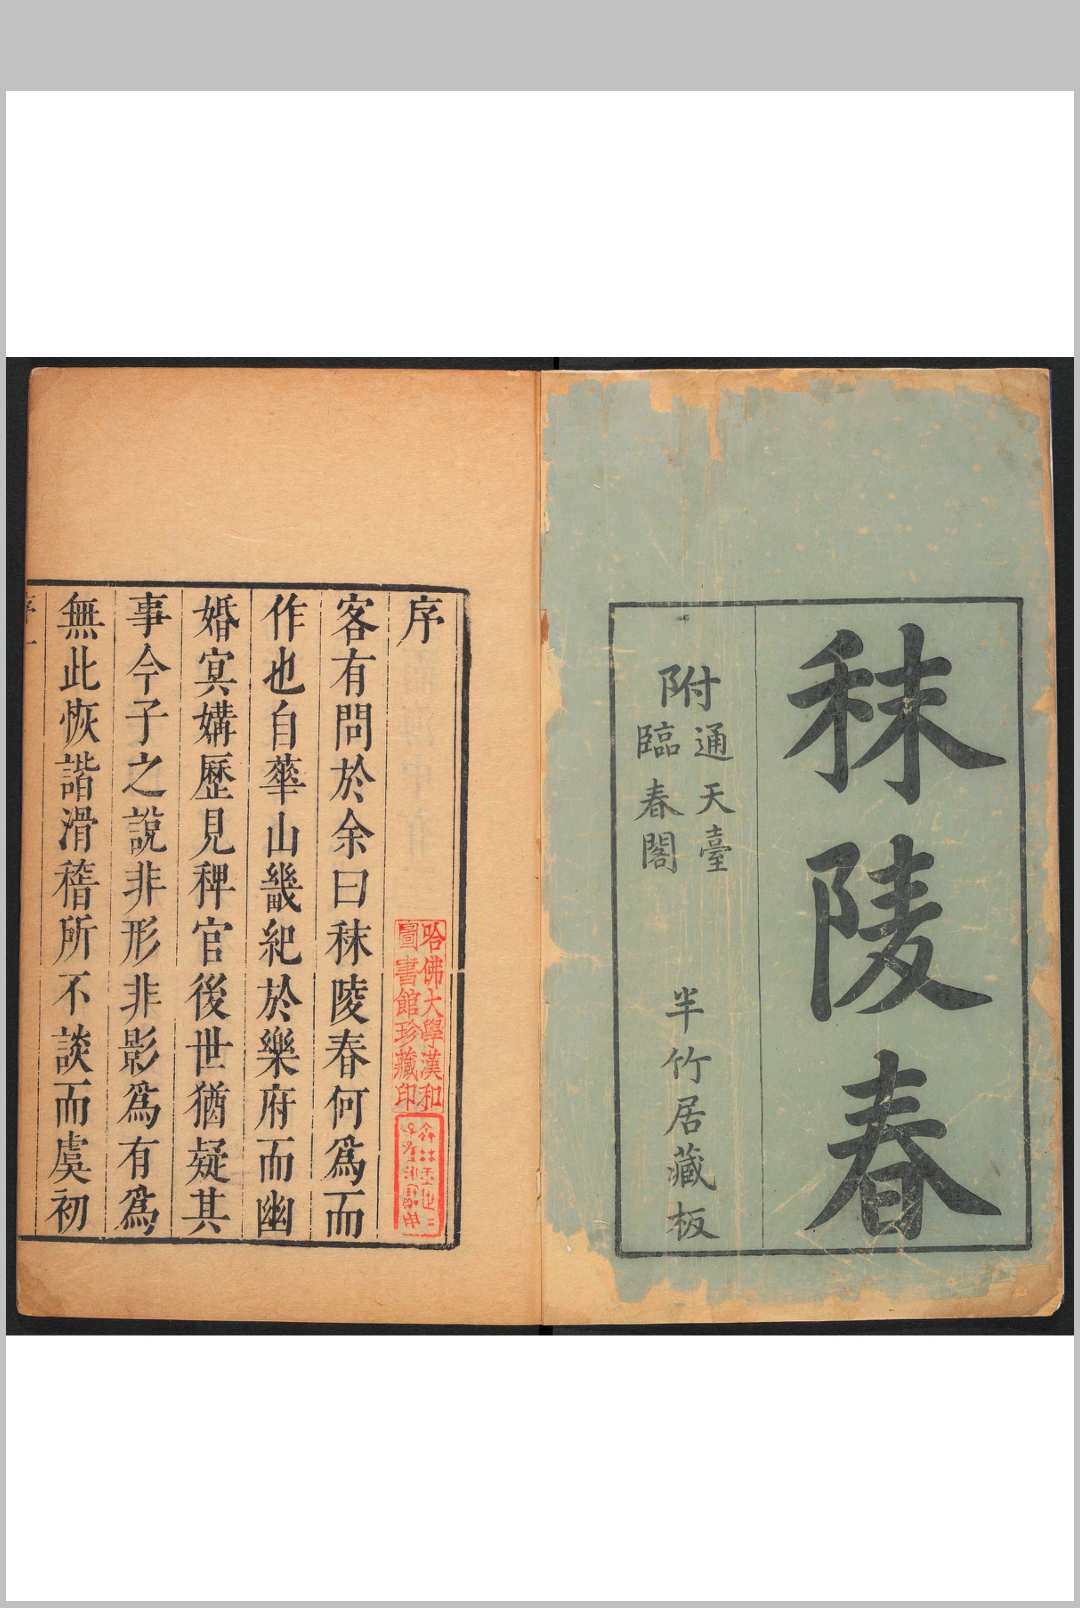 秣陵春
附
通天臺
臨春閣
半竹居藏板
序
哈佛大學漢和
圖書館珍藏印
客有問於余曰秣陵春何爲而
作也自華山畿紀於樂府而幽
婚㝠媾歷見稗官後世猶疑其
事今子之說非形非影爲有爲
無此恢諧滑稽所不談而虞初